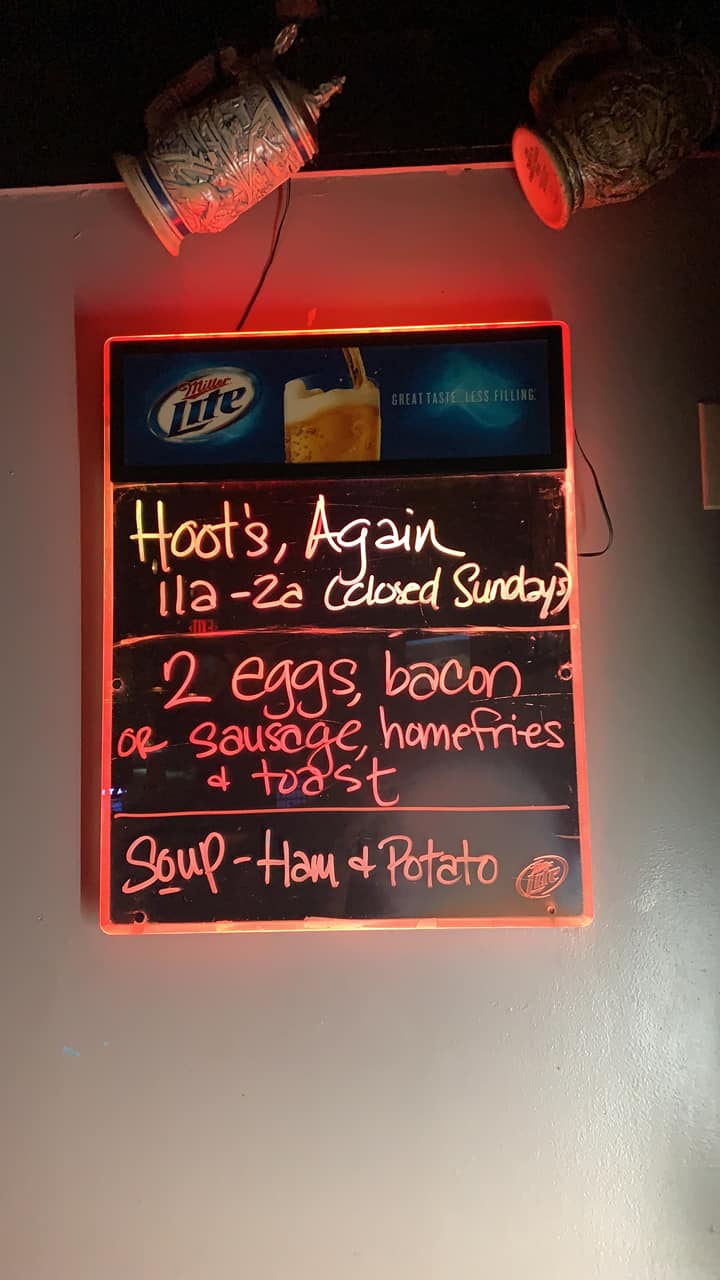 Miller
Lite
GREAT TASTE. LESS FILLING.
Hoot's, Again
11a-2a (closed Sundays)
2 eggs, bacon
or sausage, homefries
& toast
Soup - Ham & Potato
Lite